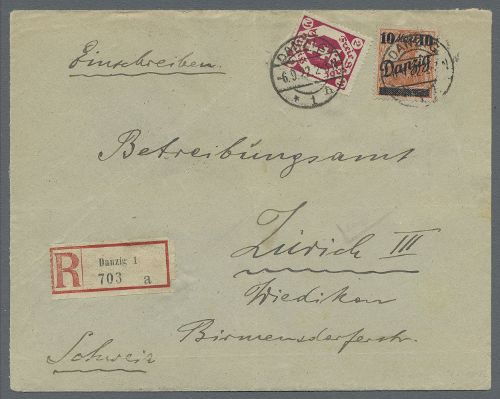 Einschreiben.
10 10
Danzig
Betreibungsamt
Zürich III
Wiedikon
Birmensdorferstr.
Schweiz
R
Danzig 1
703 a